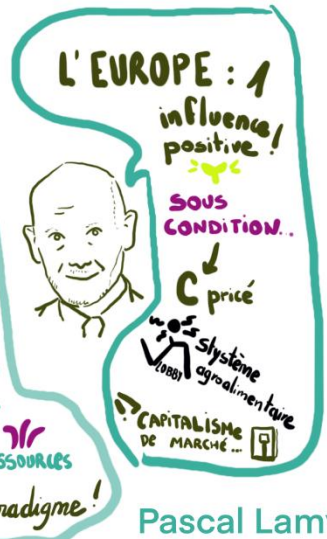 L'EUROPE : 1
influence !
positive
SOUS
CONDITION...
C pricé
LOBBY
slystème
agroalimentaire
CAPITALISME
DE MARCHÉ...
SSOURCES
radigme !
Pascal Lamy